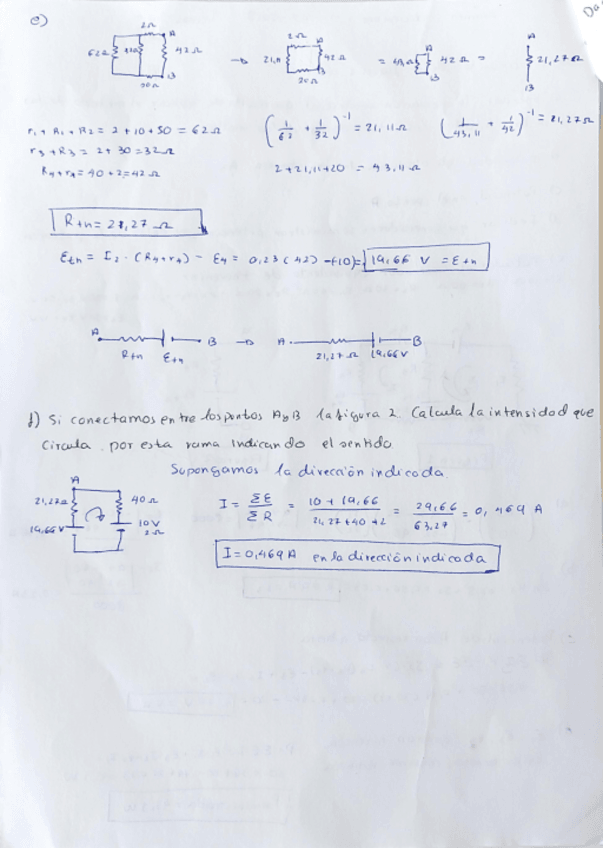 e)
2Ω A
62Ω 32Ω 42Ω
20Ω B
→
2Ω A
21,11 42Ω
20Ω B
=
A
42Ω
B
=
A
21,27Ω
B
r₁ + R₁ + R₂ = 2 + 10 + 50 = 62Ω
r₃ + R₃ = 2 + 30 = 32Ω
R₄ + r₄ = 40 + 2 = 42Ω
(1/62 + 1/32)⁻¹ = 21,11Ω
(1/43,11 + 1/42)⁻¹ = 21,27Ω
2 + 21,11 + 20 = 43,11Ω
Rtn = 21,27 Ω
Eth = I₂ · (R₄+r₄) - E₄ = 0,23 (42) -(-10) = 19,66 V = Etn
A Rtn Etn B → A 21,27Ω 19,66V B
f) Si conectamos entre los puntos A y B la figura 2. Calcula la intensidad que
circula por esta rama indicando el sentido.
Supongamos la dirección indicada.
A
21,27Ω 40Ω
19,66V 10V
2Ω
B
I = ΣE / ΣR = 10 + 19,66 / 21,27 + 40 + 2 = 29,66 / 63,27 = 0,469 A
I = 0,469 A en la dirección indicada